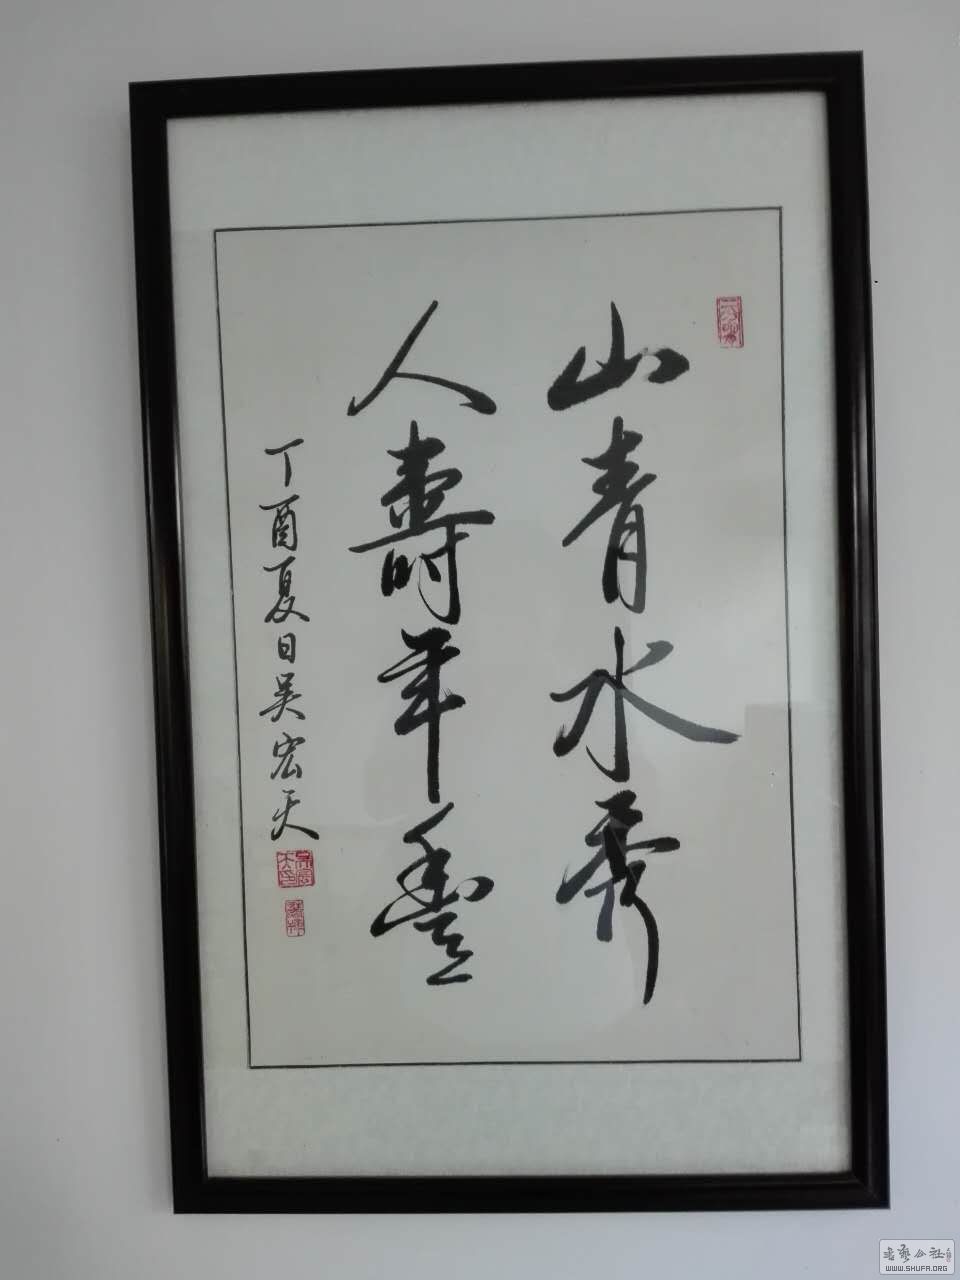 山青水秀
人壽年豐
丁酉夏日吴宏天
書藝公社
WWW.SHUFA.ORG